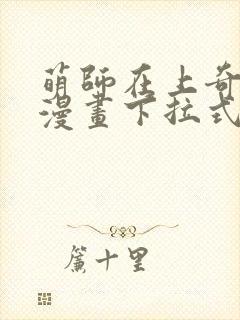 萌師在上奇
漫畫下拉式
簾十里